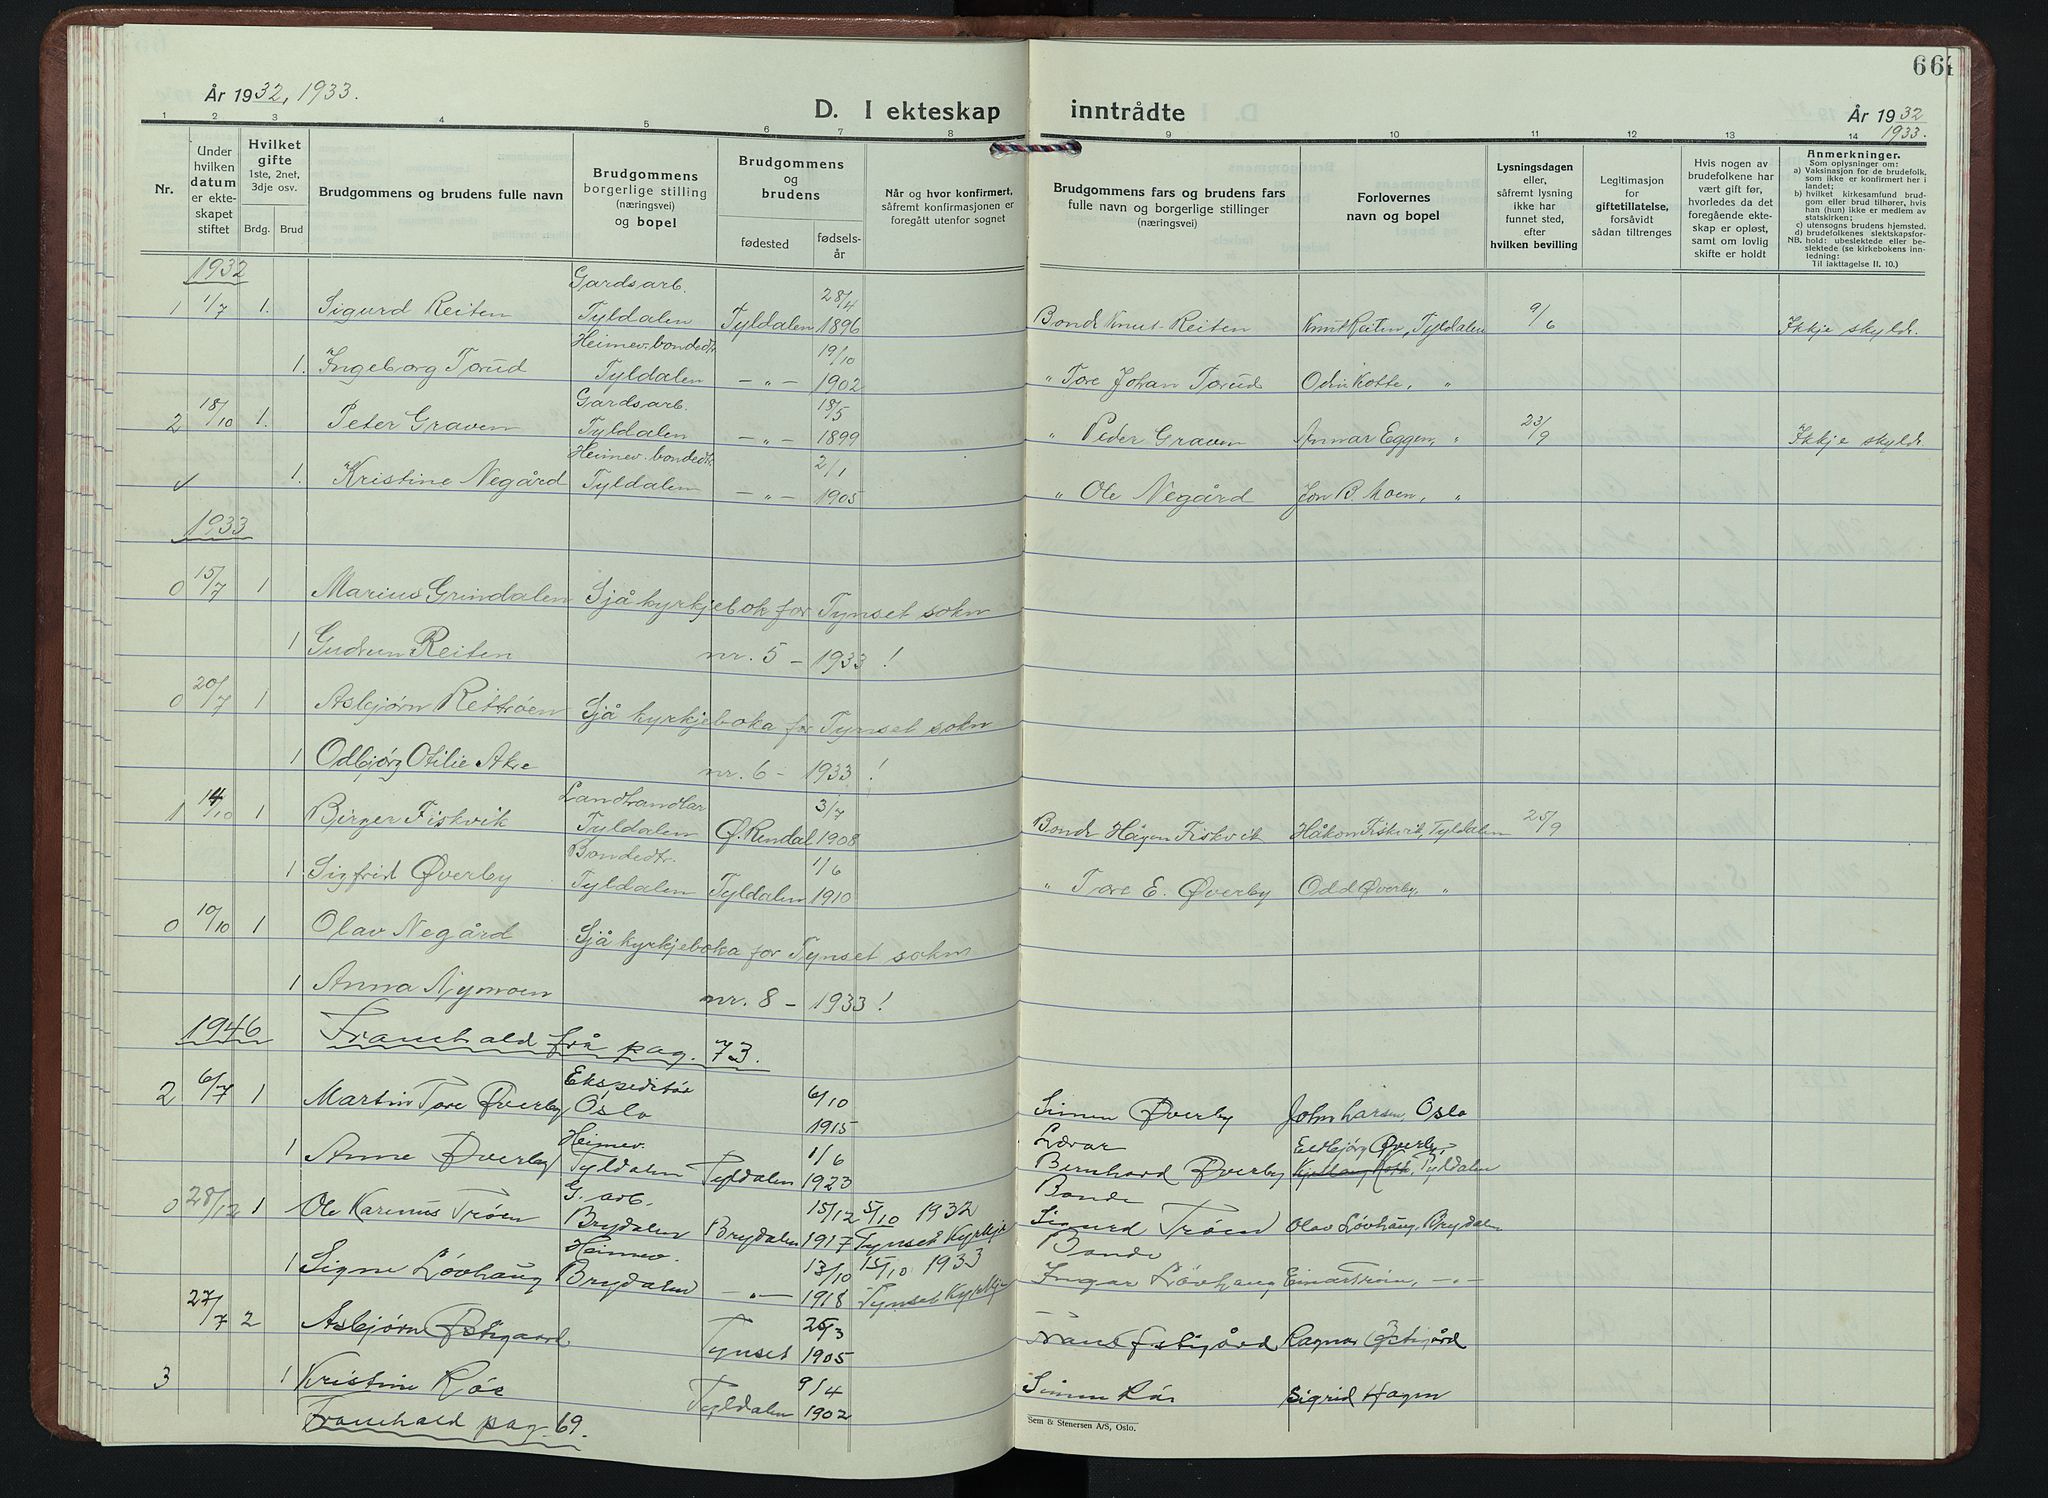 År 1932, 1933.
D. I ekteskap inntrådte
664
År 1932
1933.
1 2 3 4 5 6 7 8 9 10 11 12 13 14
Nr.
Under hvilken datum er ekteskapet stiftet
Hvilket gifte 1ste, 2net, 3dje osv.
Brdg. Brud
Brudgommens og brudens fulle navn
Brudgommens borgerlige stilling (næringsvei) og bopel
Brudgommens og brudens
fødested
fødselsår
Når og hvor konfirmert, såfremt konfirmasjonen er foregått utenfor sognet
Brudgommens fars og brudens fars fulle navn og borgerlige stillinger (næringsvei)
Forlovernes navn og bopel
Lysningsdagen eller, såfremt lysning ikke har funnet sted, efter hvilken bevilling
Legitimasjon for giftetillatelse, forsåvidt sådan tiltrenges
Hvis nogen av brudefolkene har vært gift før, hvorledes da det foregående ekteskap er opløst, samt om lovlig skifte er holdt
Anmerkninger.
Som oplysninger om:
a) Vaksinasjon for de brudefolk, som ikke er konfirmert her i landet;
b) hvilket kirkesamfund brudgom eller brud tilhører, hvis han (hun) ikke er medlem av statskirken;
c) utensogns brudens hjemsted.
d) brudefolkenes slektskapsforhold: ubeslektede eller beslektede (se kirkebokens innledning:
NB. Til iakttagelse II. 10.)
1932
Gardsarb. 28/4
1 1/7 1. Sigurd Reiten Tyldalen Tyldalen 1896 Bonde Knut Reiten Knut Reiten, Tyldalen 9/6 Ikkje skylde.
Heimev. bondedtr. 19/10
1. Ingeborg Torud Tyldalen —„— 1902 " Tore Johan Torud Odin Kotte, "
Gardsarb. 18/5
2 18/10 1. Peter Graven Tyldalen —„— 1899 " Peder Graven Annar Eggen, " 23/9 Ikkje skylde.
Heimev. bondedtr. 2/1
1. Kristine Negård Tyldalen —„— 1905 " Ole Negård Jon B. Moen, "
1933
0 15/7 1 Marius Grindalen Sjå kyrkjebok for Tynset sokn
1 Gudrun Reiten nr. 5 – 1933!
0 20/7 1 Asbjørn Reitrøen Sjå kyrkjeboka for Tynset sokn
1 Odbjørg Otilie Akre nr. 6 – 1933!
Landhandlar 3/7
1 14/10 1 Birger Fiskvik Tyldalen Ø. Rendal 1908 Bonde Hågen Fiskvik Håkon Fiskvik, Tyldalen 25/9
Bondedtr. 1/6
1 Sigfrid Øverby Tyldalen Tyldalen 1910 " Tore E. Øverby Odd Øverby, "
0 10/10 1 Olav Negård Sjå kyrkjeboka for Tynset sokn
1 Anna Nymoen nr. 8 – 1933!
1946 Framhald frå pag. 73.
Ekspeditør 6/10
2 6/7 1 Martin Tore Øverby, Oslo 1915 Simen Øverby John Larsen, Oslo
Heimev. 1/6 Lærar Eldbjørg Øverby,
1 Anne Øverby Tyldalen Tyldalen 1923 Bernhard Øverby Tyldalen
G. arb. 15/12 5/10 1932 Bonde
0 28/12 1 Ole Karenus Trøen Brydalen Brydalen 1917 Tynset Kyrkje Sigurd Trøen Olav Løvhaug, Brydalen
Heimev. 13/10 15/10 1933 Bonde
1 Signe Løvhaug Brydalen —„— 1918 Tynset Kyrkje Ingar Løvhaug Einar Trøen, —„—
27/7 2 Asbjørn Østigaard Tynset 25/3 1905 Østigård Ragnar Østigård
3 1 Kristine Røe Tyldalen 9/4 1902 Simen Røe Sigrid Hagen
Framhald pag. 69.
Sem & Stenersen A/S, Oslo.